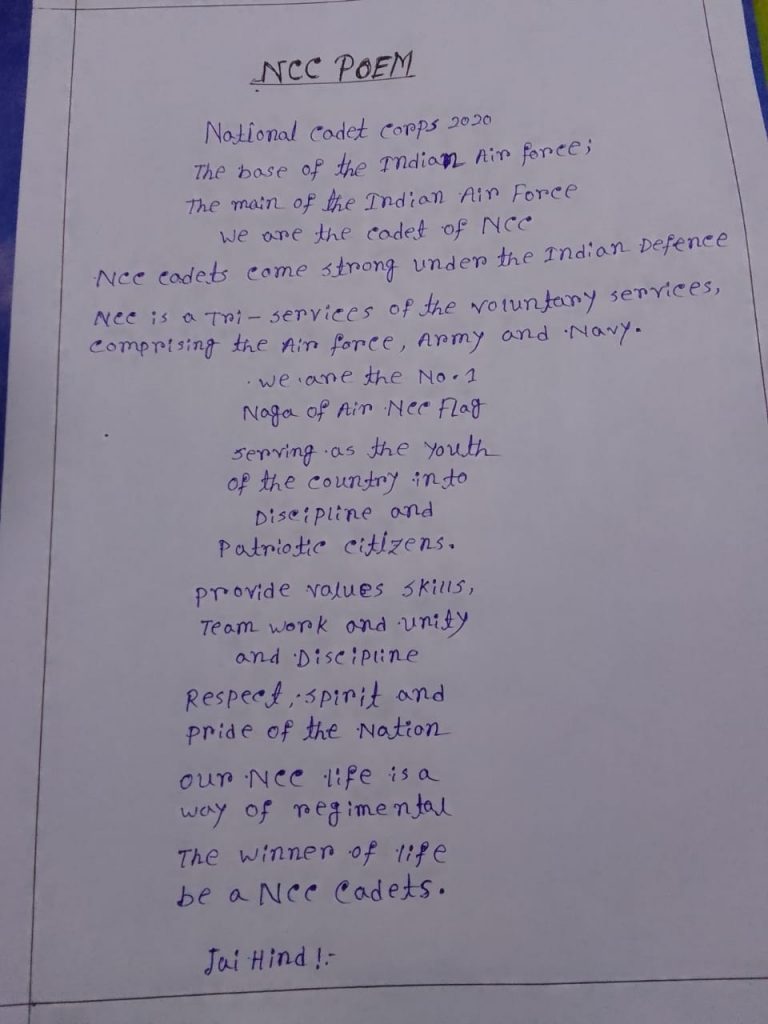 NCC POEM
National Cadet Corps 2020
The base of the Indian Air force;
The main of the Indian Air Force
We are the cadet of NCC
NCC cadets come strong under the Indian Defence
NCC is a Tri-services of the voluntary services,
comprising the Air force, Army and Navy.
we are the No.1
Naga of Air NCC Flag
serving as the Youth
of the country into
Discipline and
Patriotic citizens.
provide values skills,
Team work and unity
and Discipline
Respect, spirit and
pride of the Nation
our NCC life is a
way of regimental
The winner of life
be a NCC Cadets.
Jai Hind!:-